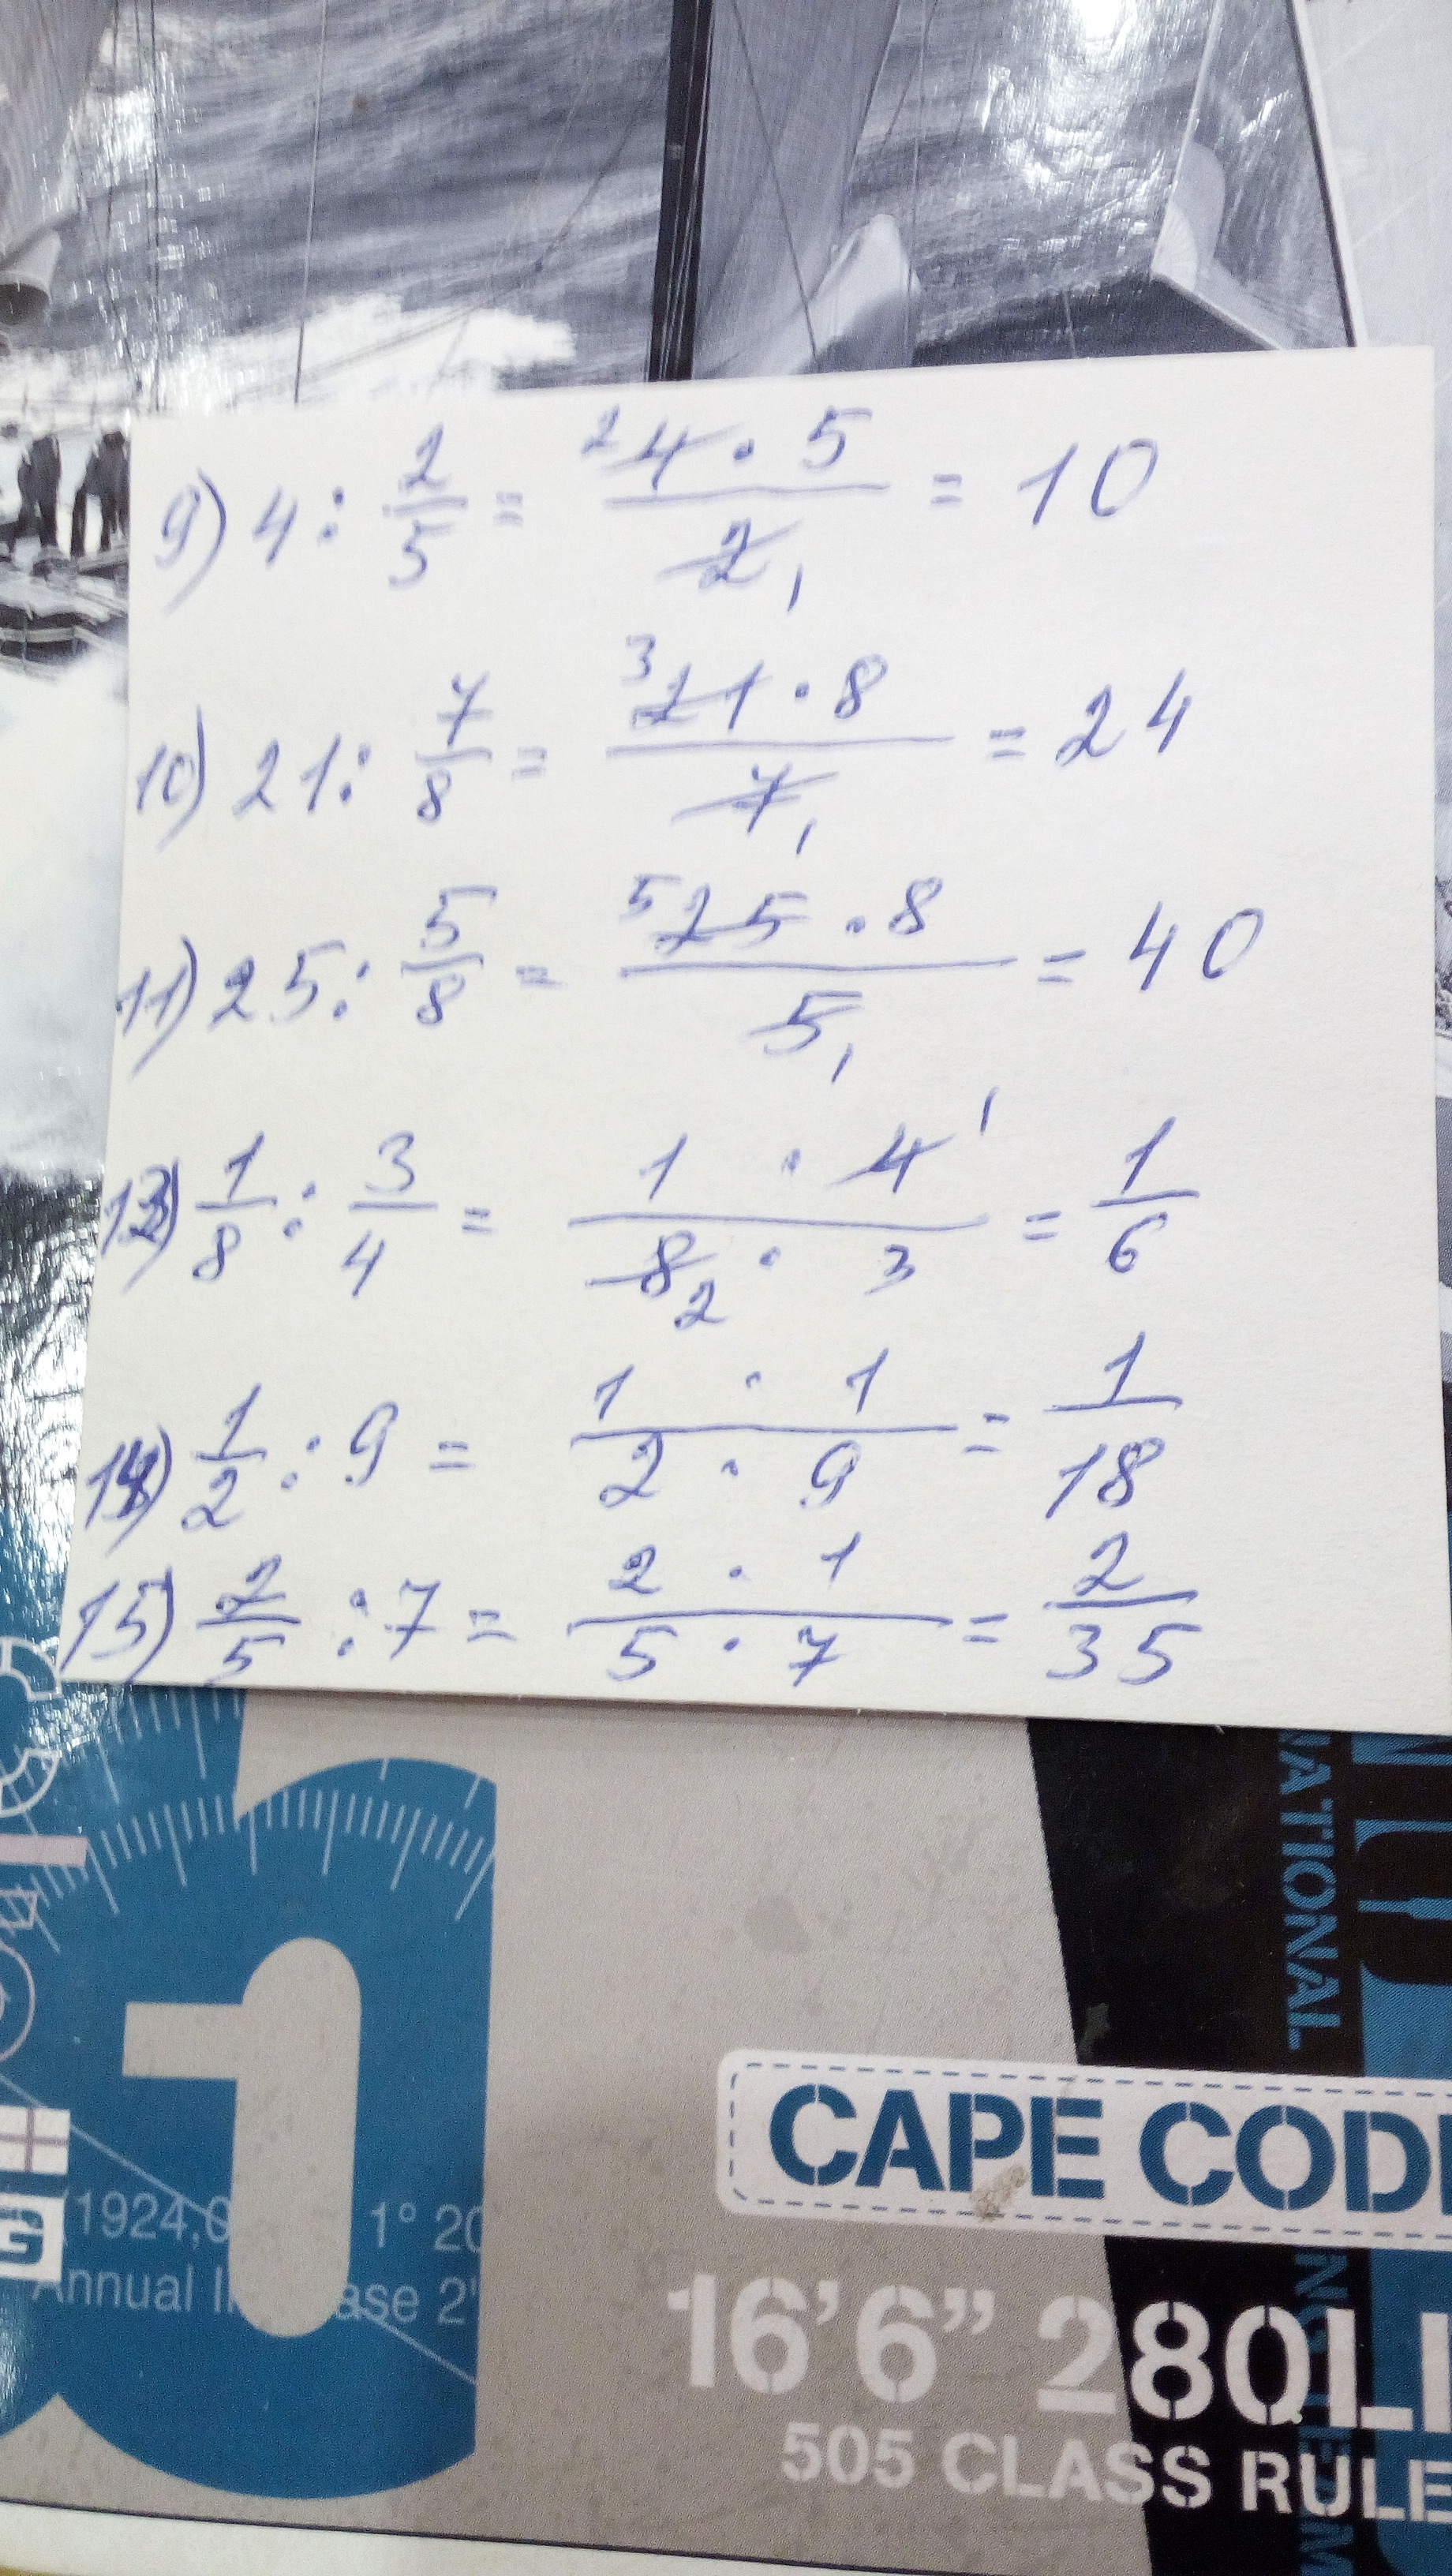 9) 4 : 2/5 = ²4 · 5 / 2₁ = 10
10) 21 : 7/8 = ³21 · 8 / 7₁ = 24
11) 25 : 5/8 = ⁵25 · 8 / 5₁ = 40
13) 1/8 : 3/4 = 1 · 4¹ / 8₂ · 3 = 1/6
14) 1/2 : 9 = 1 · 1 / 2 · 9 = 1/18
15) 2/5 : 7 = 2 · 1 / 5 · 7 = 2/35
NATIONAL
1
1924,
1° 20
Annual
ase 2'
G
CAPE COD
16'6” 280LI
505 CLASS RULE